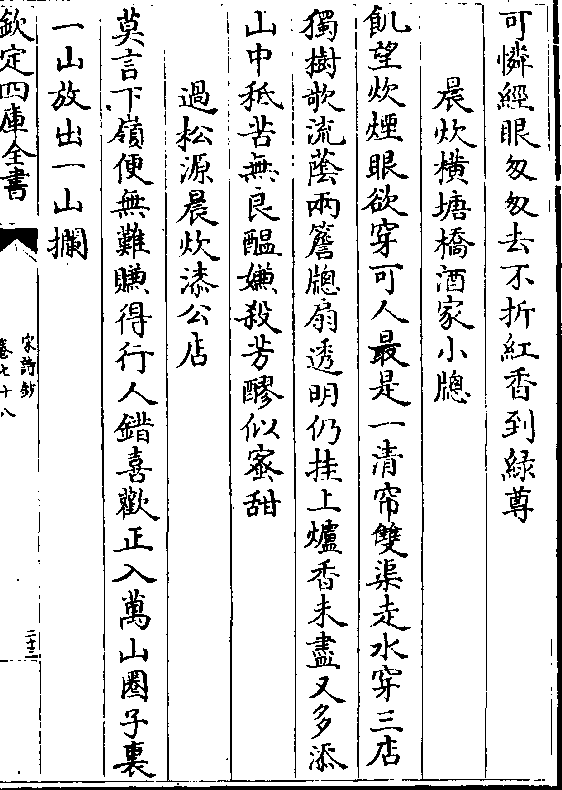 可憐經眼匆匆去不折紅香到緑尊
晨炊橫塘橋酒家小牎
飢望炊煙眼欲穿可人最是一清帘雙渠走水穿三店
獨樹欹流蔭兩簷牎扇透明仍挂上爐香未盡又多添
山中秪苦無良醞嫌殺芳醪似蜜甜
過松源晨炊漆公店
莫言下嶺便無難賺得行人錯喜歡正入萬山圈子裏
一山放出一山攔
欽定四庫全書
宋詩鈔
卷七十八
二十三